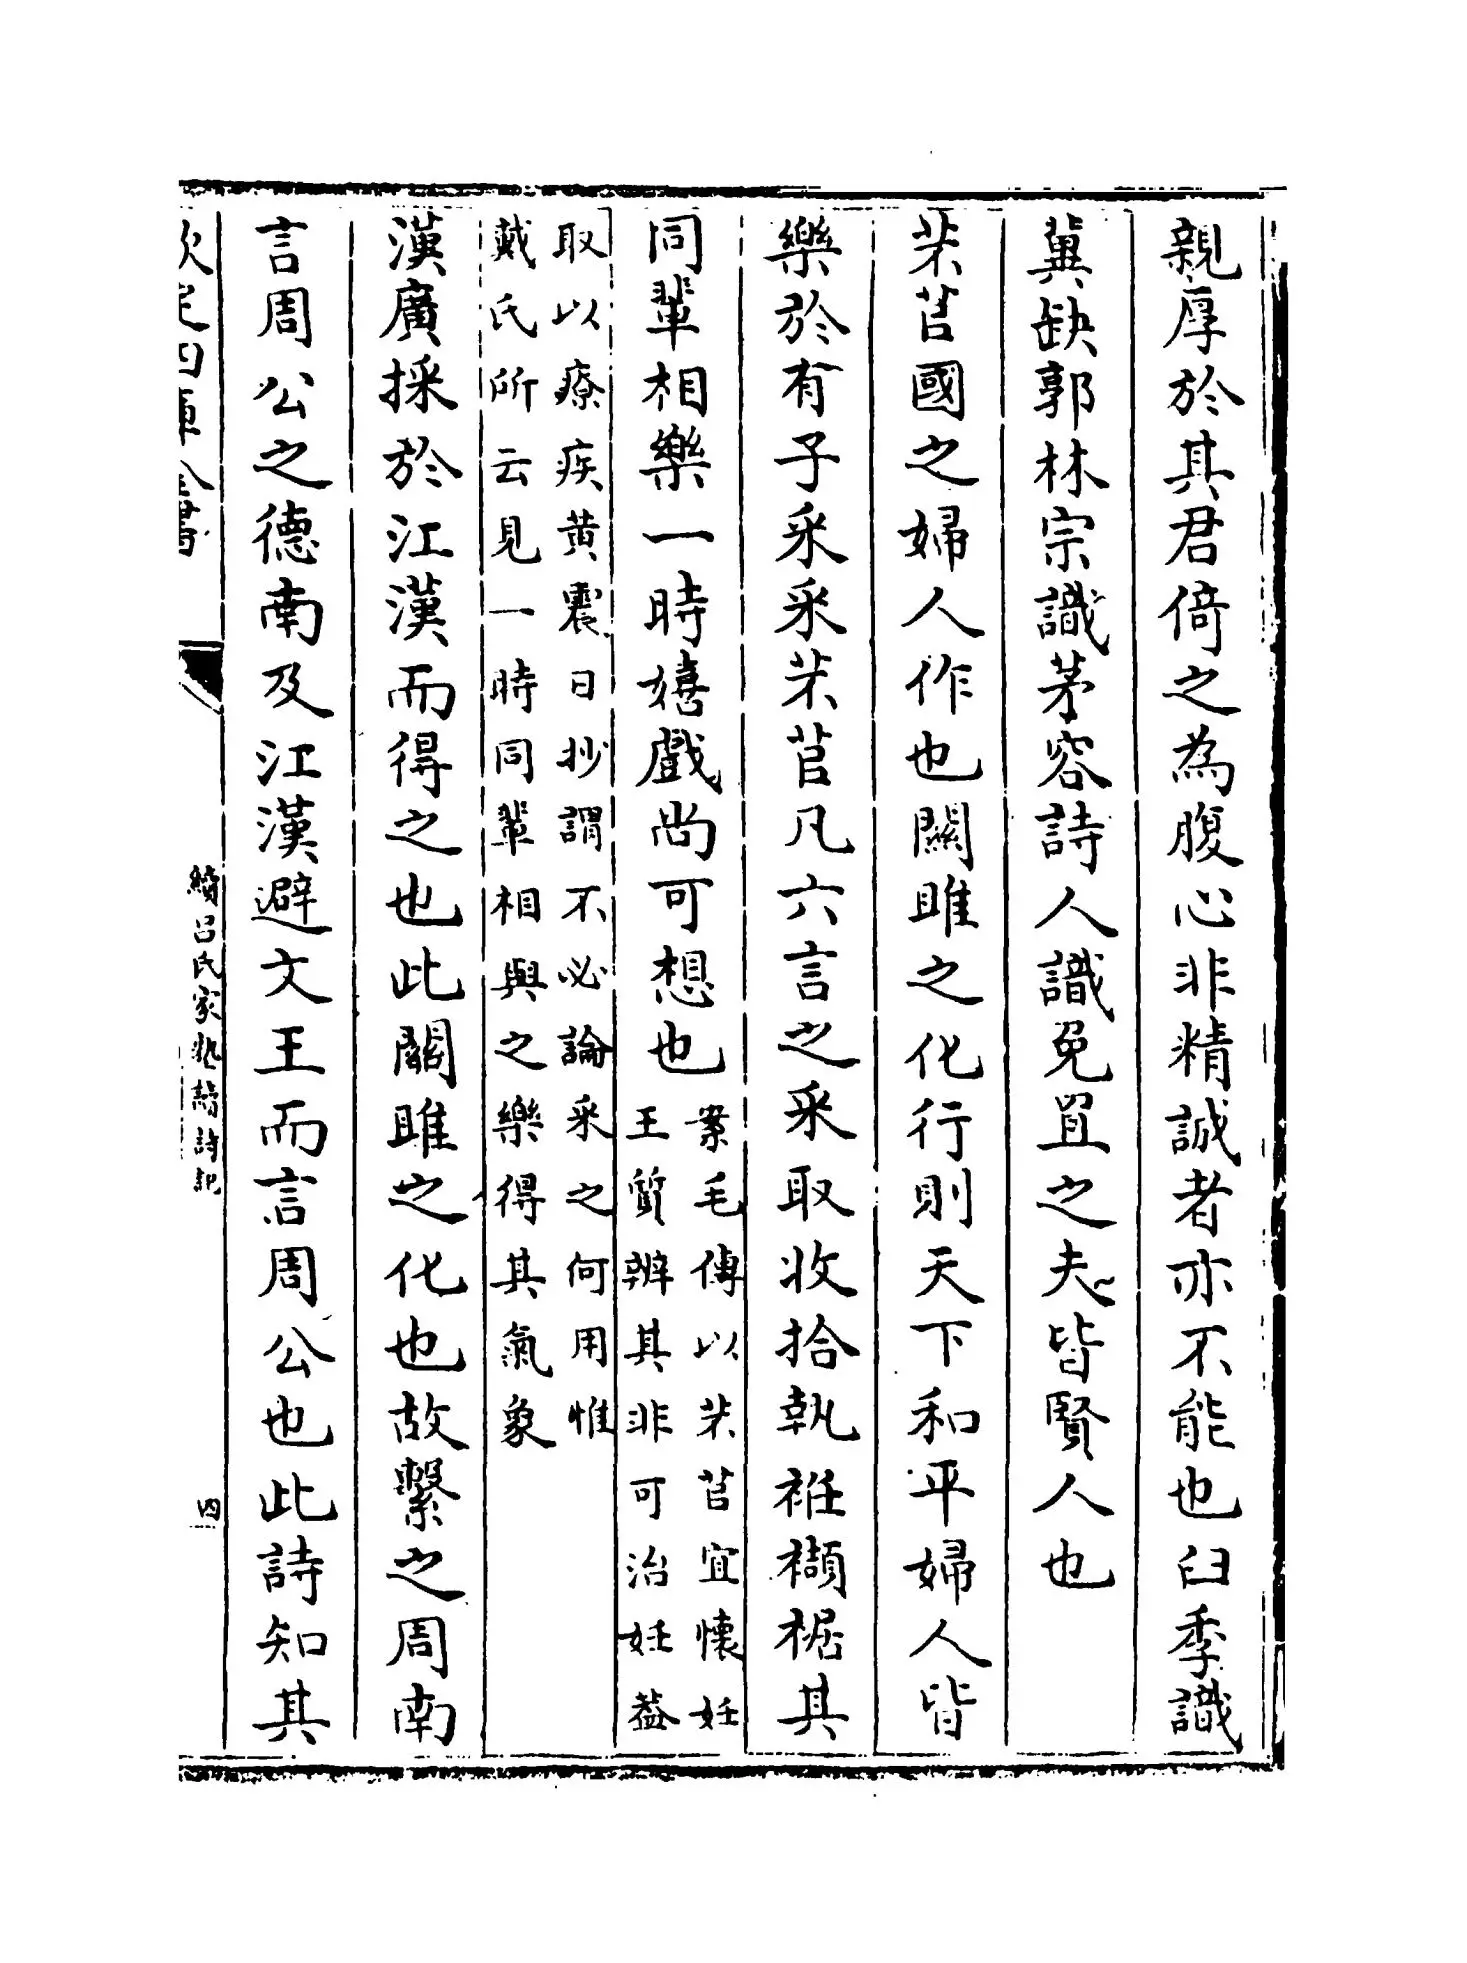 親厚於其君倚之為腹心非精誠者亦不能也臼季識
冀缺郭林宗識茅容詩人識兔罝之夫皆賢人也
芣苢國之婦人作也關雎之化行則天下和平婦人皆
樂於有子采采芣苢凡六言之采取收拾執袵襭椐其
同輩相樂一時嬉戲尚可想也
案毛傳以芣苢宜懷妊
王質辨其非可治妊葢
取以療疾黄震日抄謂不必論采之何用惟
戴氏所云見一時同輩相與之樂得其氣象
漢廣採於江漢而得之也此關雎之化也故繫之周南
言周公之德南及江漢避文王而言周公也此詩知其
欽定四庫全書
續呂氏家塾讀詩記
四